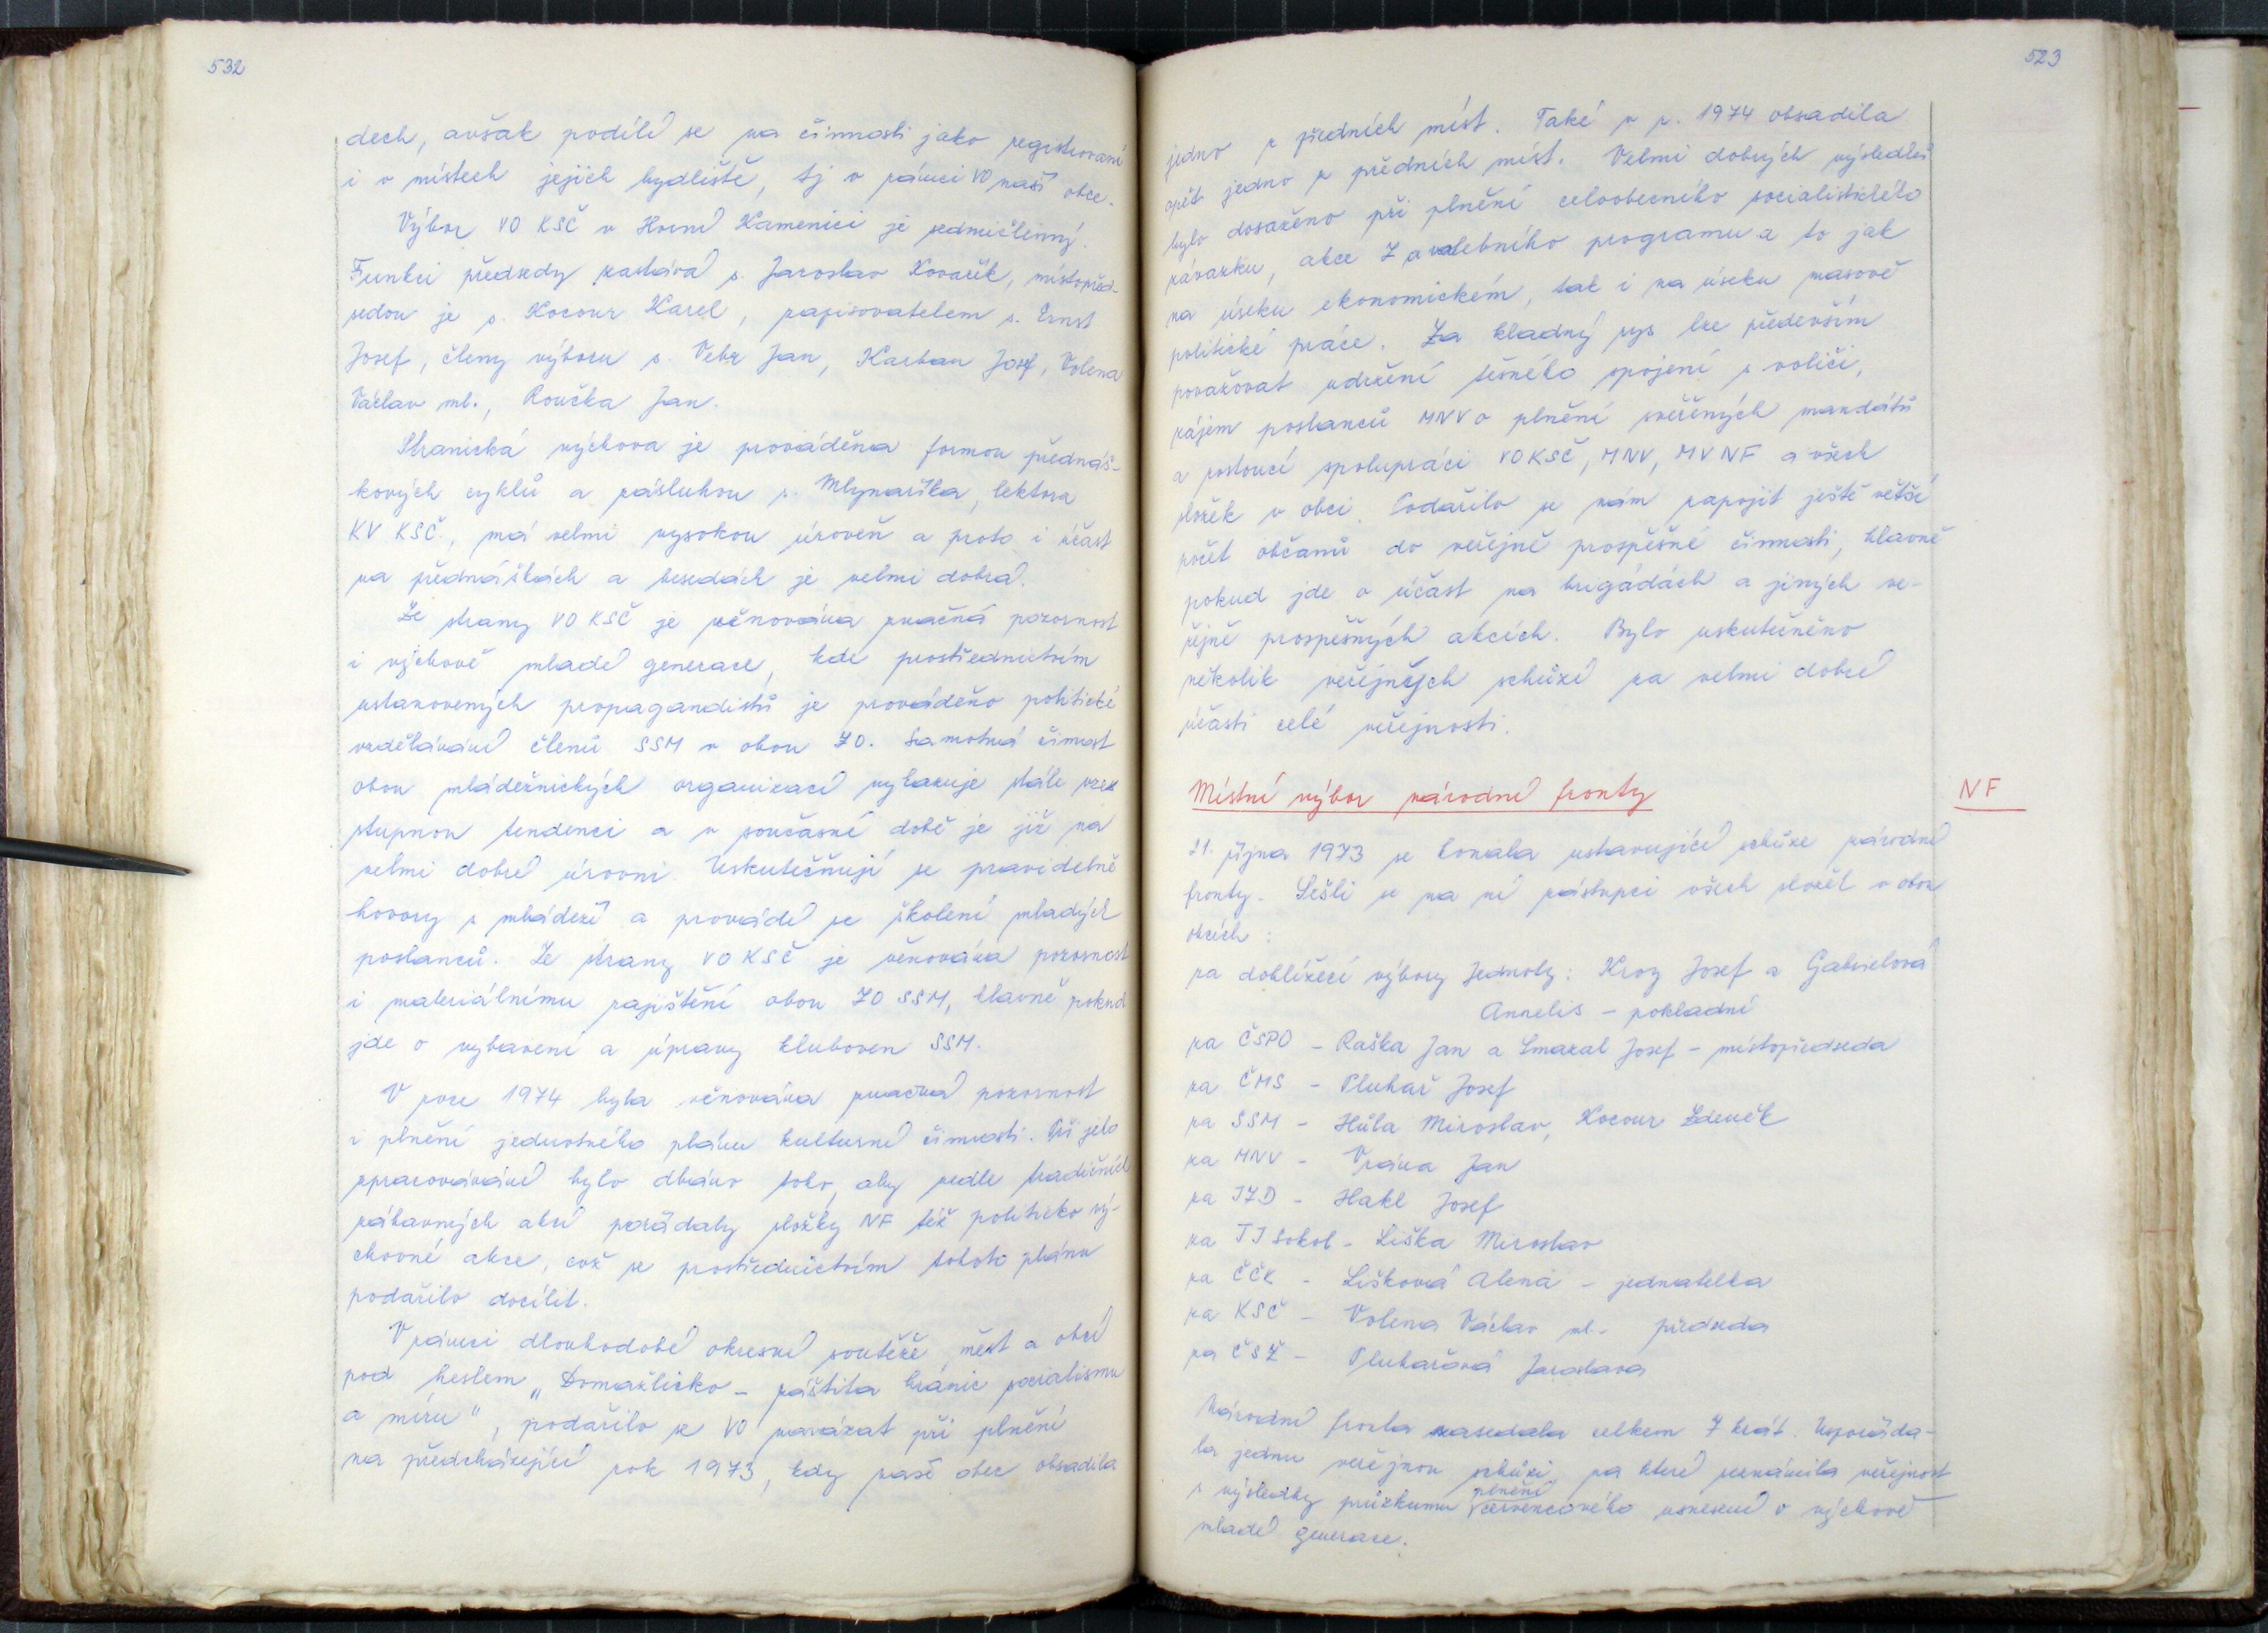 532
dech, avšak podílí se na činnosti jako registrovaní
i v místech jejich bydliště, tj v rámci VO naší obce.
Výbor VO KSČ v Horní Kamenici je sedmičlenný.
Funkci předsedy zastává s. Jaroslav Kovařík, místopřed-
sedou je s. Kocour Karel, zapisovatelem s. Ernst
Josef, členy výboru s. Vebr Jan, Karban Josef, Volena
Václav ml., Roučka Jan.
Stranická výchova je prováděna formou přednáš-
kových cyklů a zásluhou s. Mlynaříka, lektora
KV KSČ, má velmi vysokou úroveň a proto i účast
na přednáškách a besedách je velmi dobrá.
Ze strany VO KSČ je věnována značná pozornost
i výchově mladé generace, kde prostřednictvím
ustanovených propagandistů je prováděno politické
vzdělávání členů SSM v obou ZO. Samotná činnost
obou mládežnických organizací vykazuje stále vzes
stupnou tendenci a v současné době je již na
velmi dobré úrovni. Uskutečňují se pravidelně
hovory s mládeží a provádí se školení mladých
poslanců. Ze strany VO KSČ je věnována pozornost
i materiálnímu zajištění obou ZO SSM, hlavně pokud
jde o vybavení a úpravy kluboven SSM.
V roce 1974 byla věnována značná pozornost
i plnění jednotného plánu kulturní činnosti. Při jeho
zpracovávání bylo dbáno toho, aby vedle tradičních
zábavných akcí pořádaly složky NF též politicko vý-
chovné akce, což se prostřednictvím tohoto plánu
podařilo docílit.
V rámci dlouhodobé okresní soutěže měst a obcí
pod heslem „Domažlicko - záštita hranic socialismu
a míru", podařilo se VO navázat při plnění
na předcházející rok 1973, kdy naše obec obsadila
523
jedno z předních míst. Také v r. 1974 obsadila
opět jedno z předních míst. Velmi dobrých výsledků
bylo dosaženo při plnění celoobecního socialistického
závazku, akce Z a volebního programu a to jak
na úseku ekonomickém, tak i na úseku masově
politické práce. Za kladný rys lze především
považovat udržení těsného spojení s voliči,
zájem poslanců MNV o plnění svěřených mandátů
a rostoucí spolupráci VO KSČ, MNV, MV NF a všech
složek v obci. Podařilo se nám zapojit ještě větší
počet občanů do veřejně prospěšné činnosti, hlavně
pokud jde o účast na brigádách a jiných ve-
řejně prospěšných akcích. Bylo uskutečněno
několik veřejných schůzí za velmi dobré
účasti celé veřejnosti.
Místní výbor národní fronty
NF
21. října 1973 se konala ustavující schůze národní
fronty. Sešli se na ní zástupci všech složek v obou
obcích:
za doblížecí výbory Jednoty: Kroz Josef a Gabrielová
Annelis - pokladní
za ČSPO - Raška Jan a Smazal Josef - místopředseda
za ČMS - Pluhař Josef
za SSM - Hůla Miroslav, Kocour Zdeněk
za MNV - Vrána Jan
za JZD - Hakl Josef
za TJ Sokol - Liška Miroslav
za ČČK - Lišková Alena - jednatelka
za KSČ - Volena Václav ml. - předseda
za ČSŽ - Pluhařová Jaroslava
Národní fronta zasedala celkem 7 krát. Uspořáda-
la jednu veřejnou schůzi, na které seznámila veřejnost
s výsledky průzkumu plnění červencového usnesení o výchově
mladé generace.